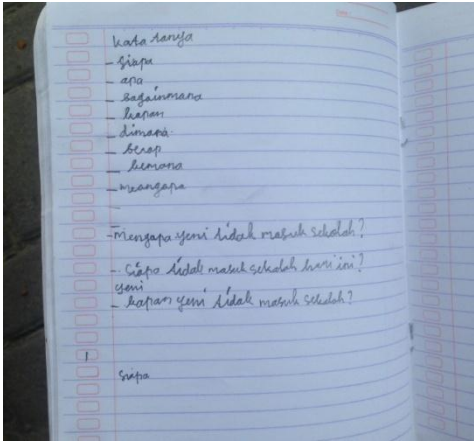 kata tanya
- siapa
- apa
- bagainmana
- kapan
- dimana
- berap
- kemana
- meangapa
-
- mengapa yeni tidak masuk sekolah?
- siapa tidak masuk sekolah hari ini?
yeni
- kapan yeni tidak masuk sekolah?
1
siapa